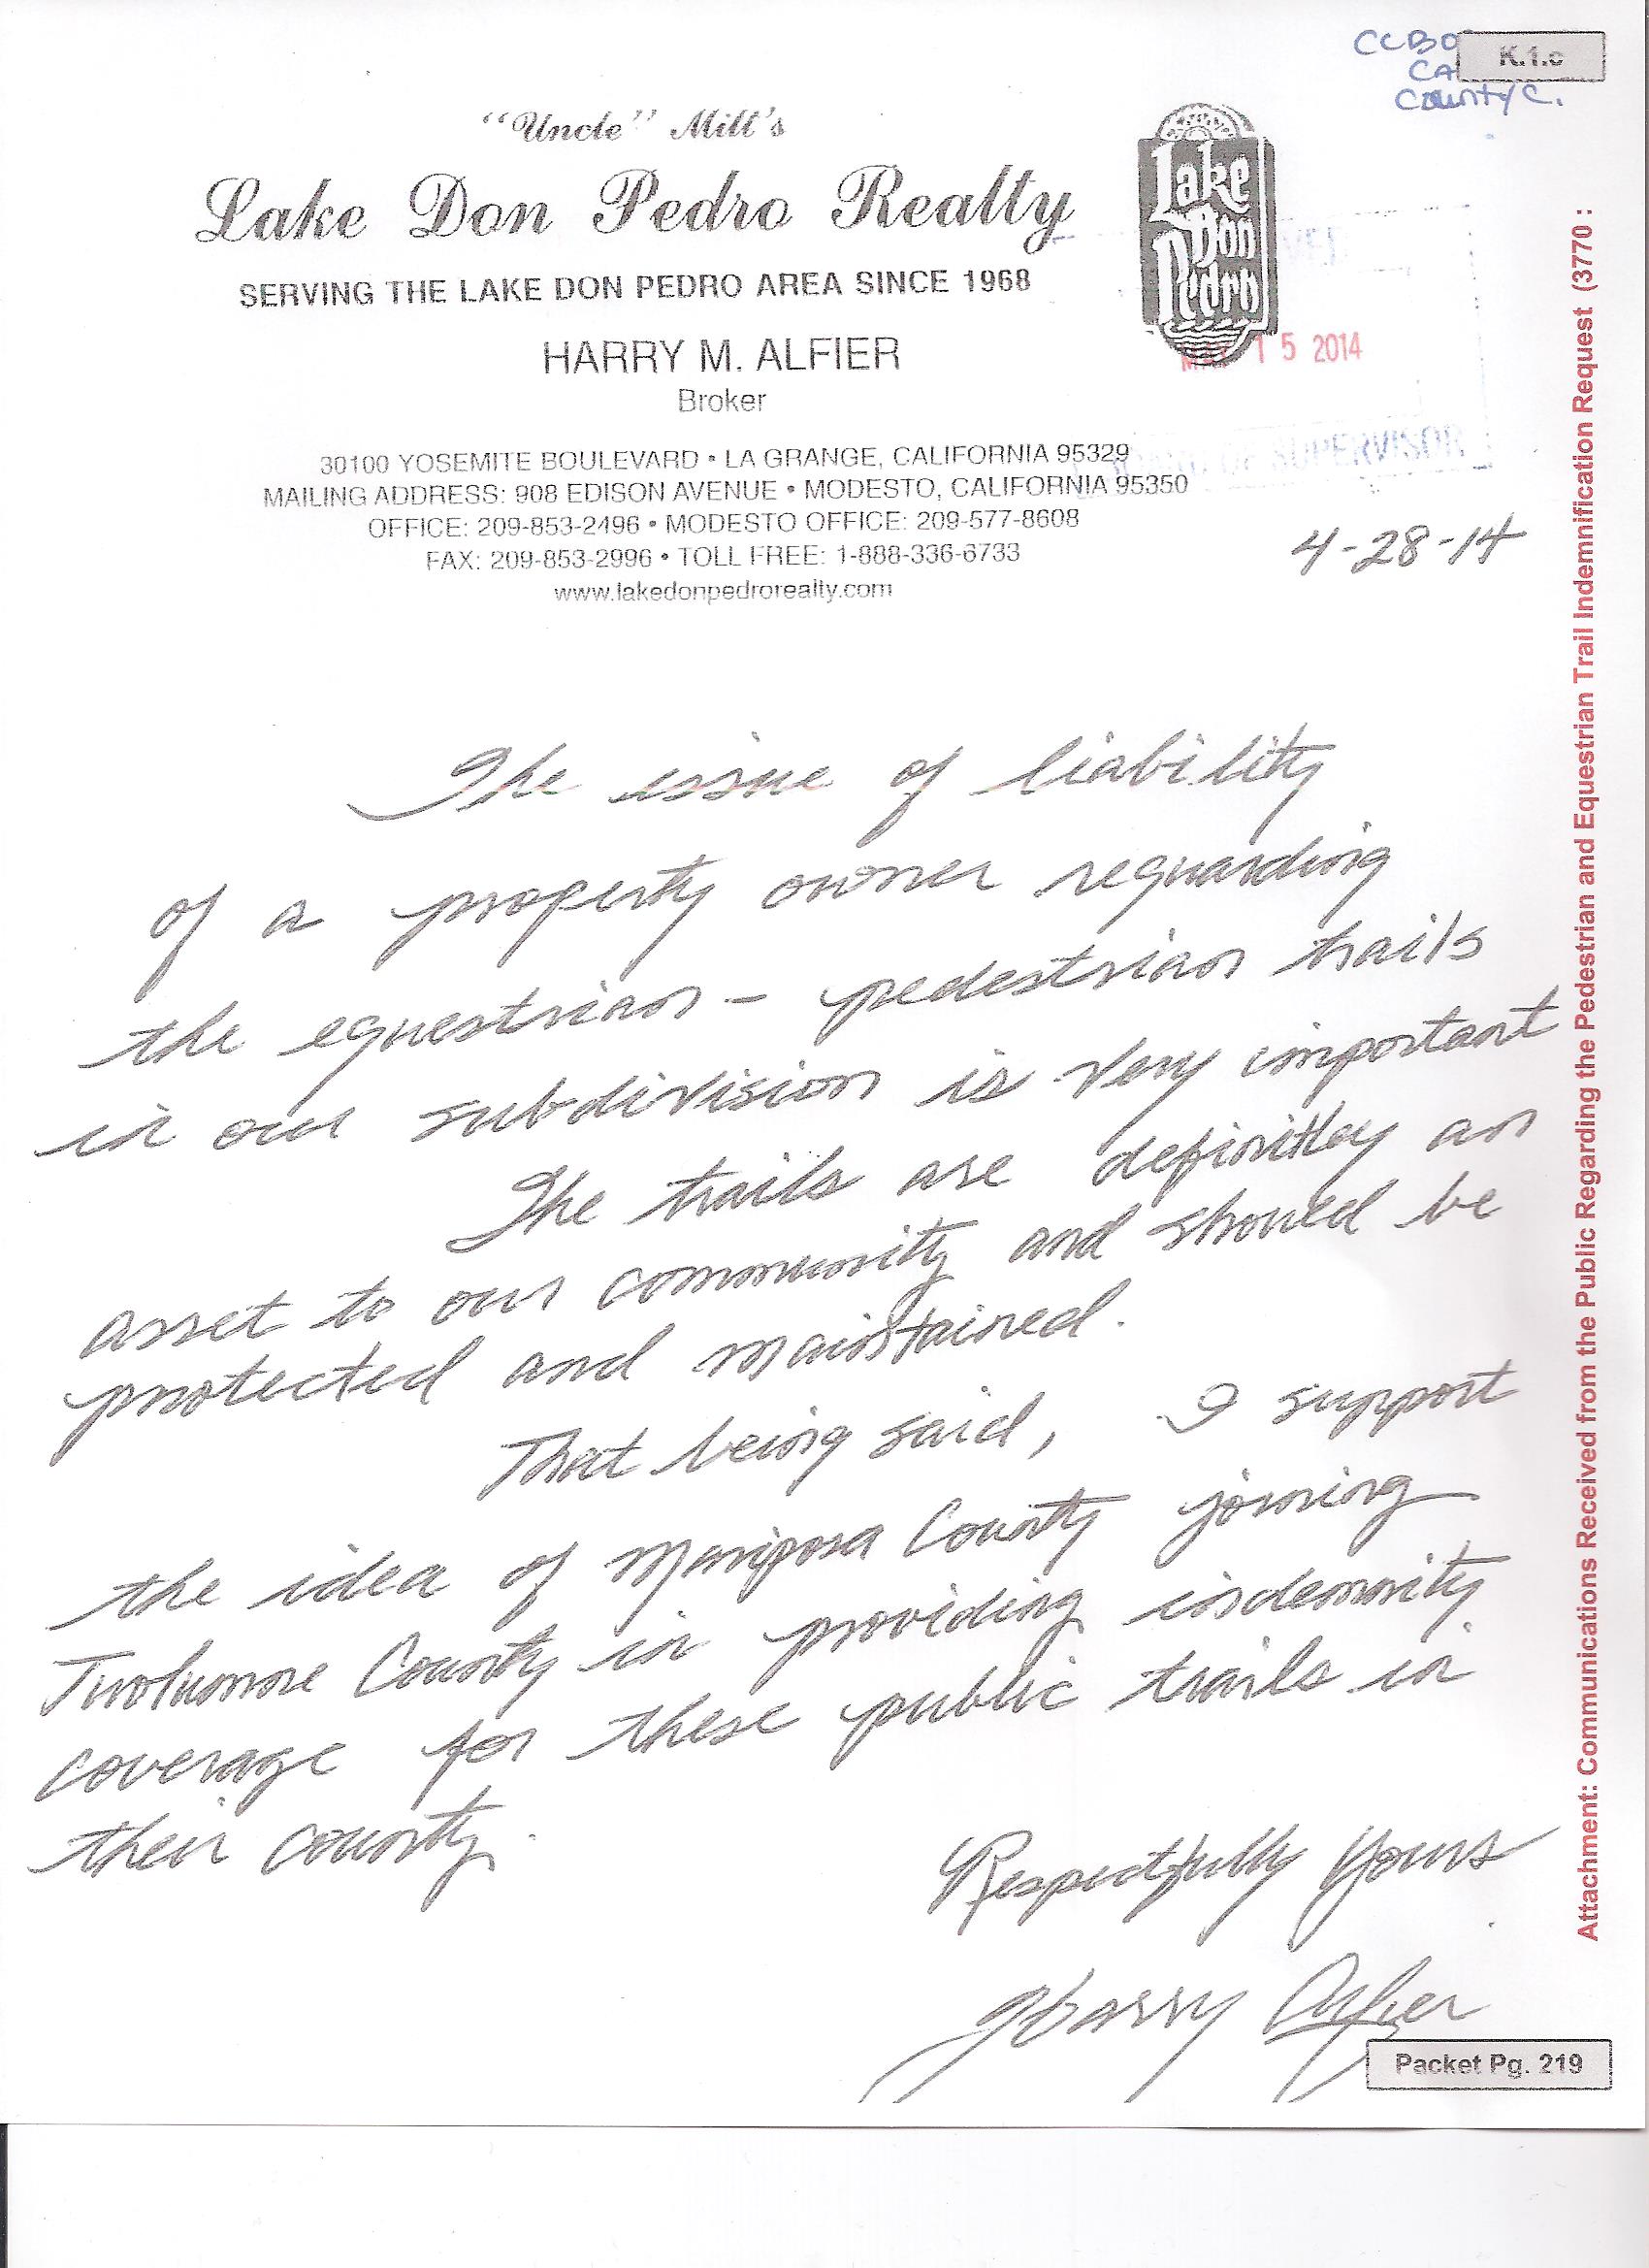 CCBO
CA
County C.
K.1.c
"Uncle" Milt's
Lake Don Pedro Realty
SERVING THE LAKE DON PEDRO AREA SINCE 1968
HARRY M. ALFIER
Broker
30100 YOSEMITE BOULEVARD • LA GRANGE, CALIFORNIA 95329
MAILING ADDRESS: 908 EDISON AVENUE • MODESTO, CALIFORNIA 95350
OFFICE: 209-853-2496 • MODESTO OFFICE: 209-577-8608
FAX: 209-853-2996 • TOLL FREE: 1-888-336-6733
www.lakedonpedrorealty.com
Lake
Don
Pedro
15 2014
SUPERVISOR
4-28-14
The issue of liability
of a property owner reguarding
the equestrian - pedestrian trails
in our subdivision is very important
The trails are definitley an
asset to our community and should be
protected and maintained.
That being said, I support
the idea of Mariposa County joining
Tuolumne County in providing indemnity
coverage for these public trails in
their county.
Respectfully Yours
Harry Alfier
Packet Pg. 219
Attachment: Communications Received from the Public Regarding the Pedestrian and Equestrian Trail Indemnification Request (3770 :